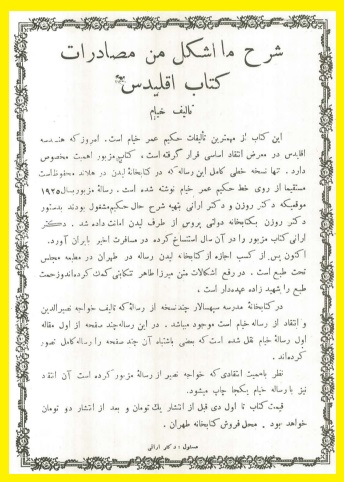 شرح ما اشکل من مصادرات
کتاب اقلیدس
تالیف خیام
این کتاب از مهمترین تالیفات حکیم عمر خیام است . امروز که هندسه
اقلیدس در معرض انتقاد اساسی قرار گرفته است . کتاب مزبور اهمیت مخصوص
دارد . تنها نسخه خطی کامل این رساله که در کتابخانهٔ لیدن در هلاند محفوظ است
مستقیما از روی خط حکیم عمر خیام نوشته شده است . رسالهٔ مزبور بسال ۱۹۲۵
موقعیکه دکتر روزن و دکتر ارانی بتهیه شرح حال حکیم مشغول بودند بدستور
دکتر روزن بکتابخانه دولتی بروس از طرف لیدن امانت داده شد . دکتر
ارانی کتاب مزبور را در آن سال استنساخ کرده در مسافرت اخیر بایران آورد .
اکنون پس از کسب اجازه از کتابخانه لیدن رساله در طهران در مطبعه مجلس
تحت طبع است . در رفع اشکالات متن میرزا طاهر تنکابنی کمک کرده اند و زحمت
طبع را شهید زاده عهده دار است .
در کتابخانهٔ مدرسه سپهسالار چند نسخه از رساله که تالیف خواجه نصیرالدین
و انتقاد از رساله خیام است موجود میباشد . در این رساله چند صفحه از اول مقاله
اول رسالهٔ خیام نقل شده است که بعضی باشتباه آن چند صفحه را رساله کامل تصور
کرده اند .
نظر باهمیت انتقادی که خواجه نصیر از رسالهٔ مزبور کرده است آن انتقاد
نیز با رساله خیام یکجا چاپ میشود .
قیمت کتاب تا اول دی قبل از انتشار یک تومان و بعد از انتشار دو تومان
خواهد بود . محل فروش کتابخانه طهران .
مسئول : دکتر ارانی